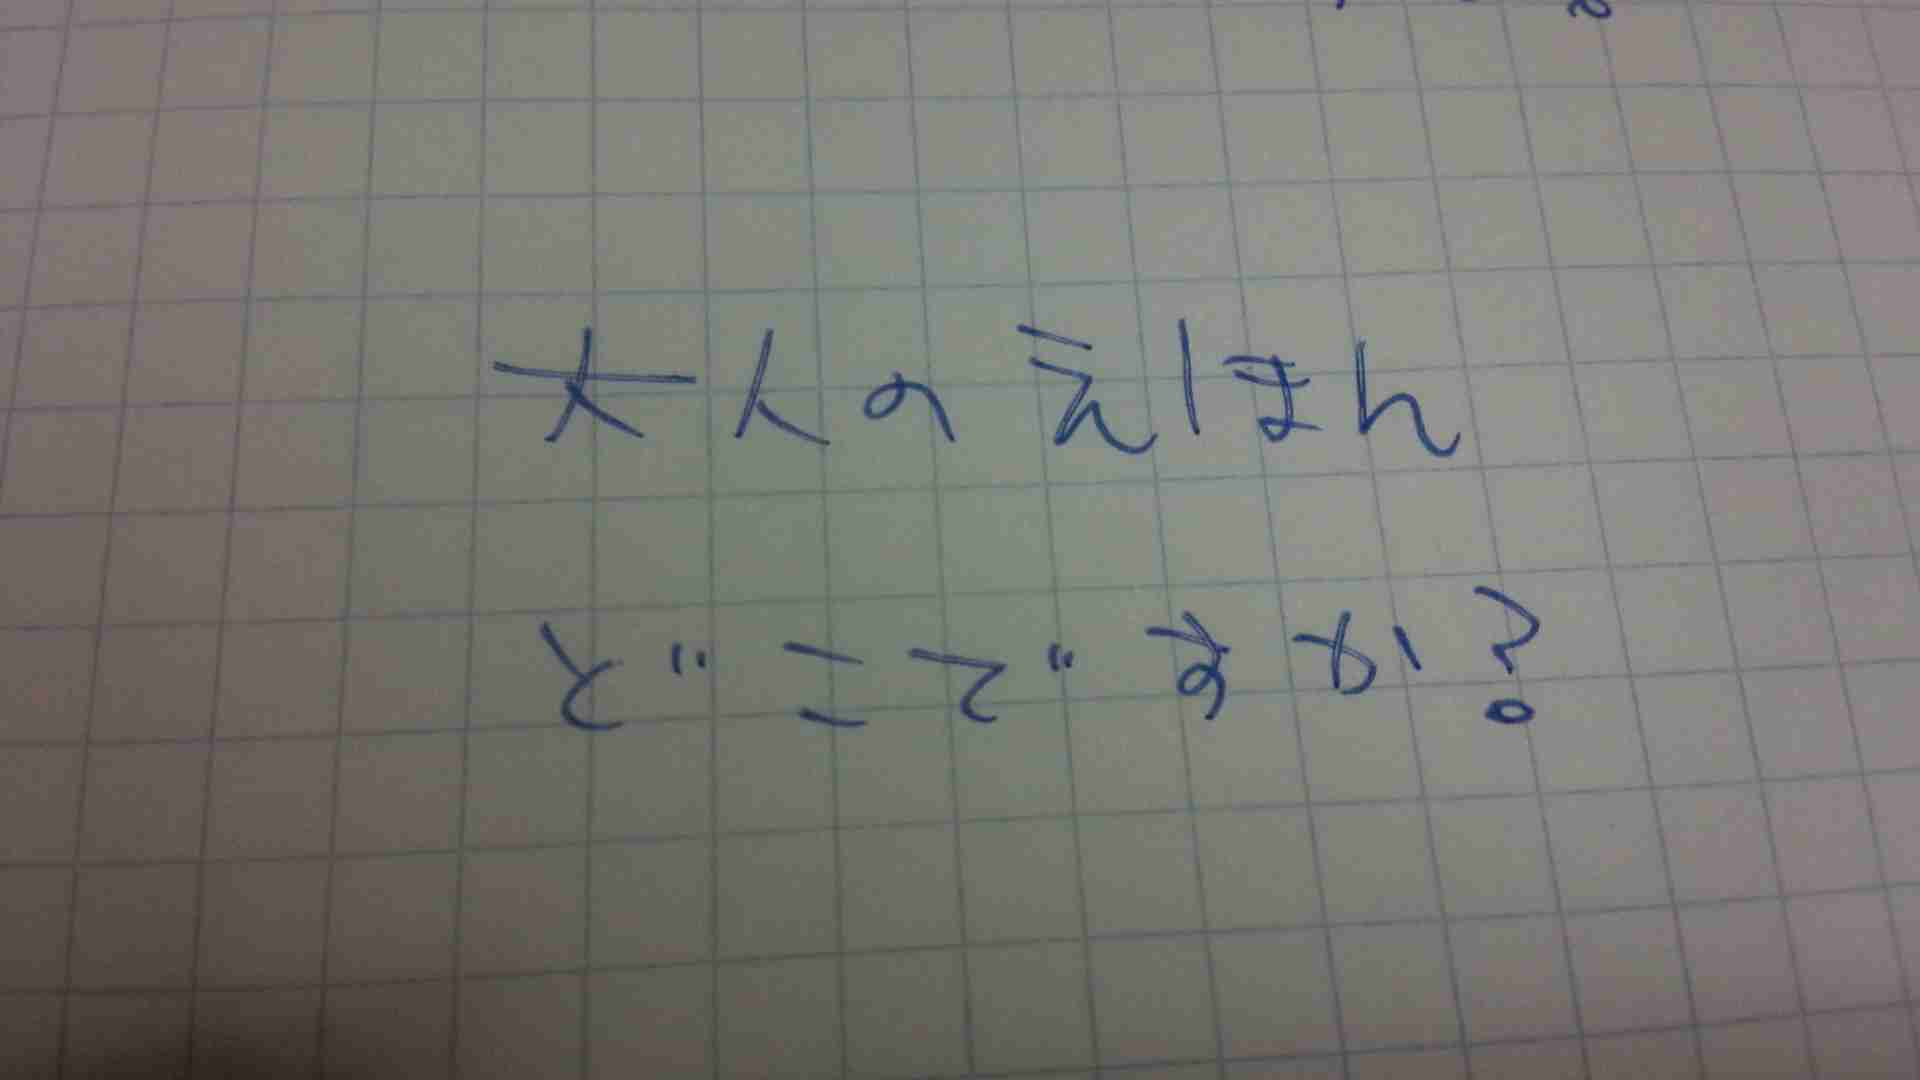 大人のえほん
どこですか?